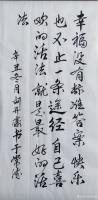 幸福没有标准答案快乐
也不止一条途径自己喜
欢的活法就是最好的活
法
辛丑冬月